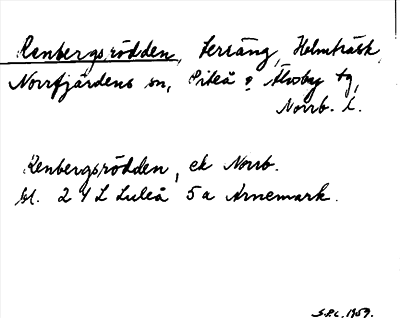 Renbergsrödden, Lerräng, Holmträsk,
Norrfjärdens sn, Piteå o Älvsby tg,
Norrb. l.
Renbergsrödden, ek Norrb.
bl. 24 L Luleå 5a Arnemark.
1959.